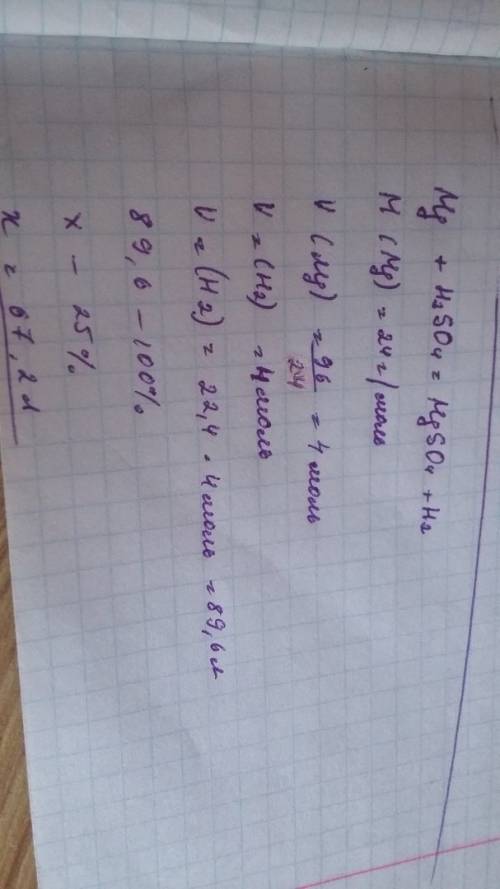 Mg + H2SO4 = MgSO4 + H2
M (Mg) = 24 = 1 моль
V (Mg) = 96/24 = 4 моль
V = (H2) = 4 моль
V = (H2) = 22,4 · 4 моль = 89,6 л
89,6 - 100%
x - 25%
x = 67,2 л